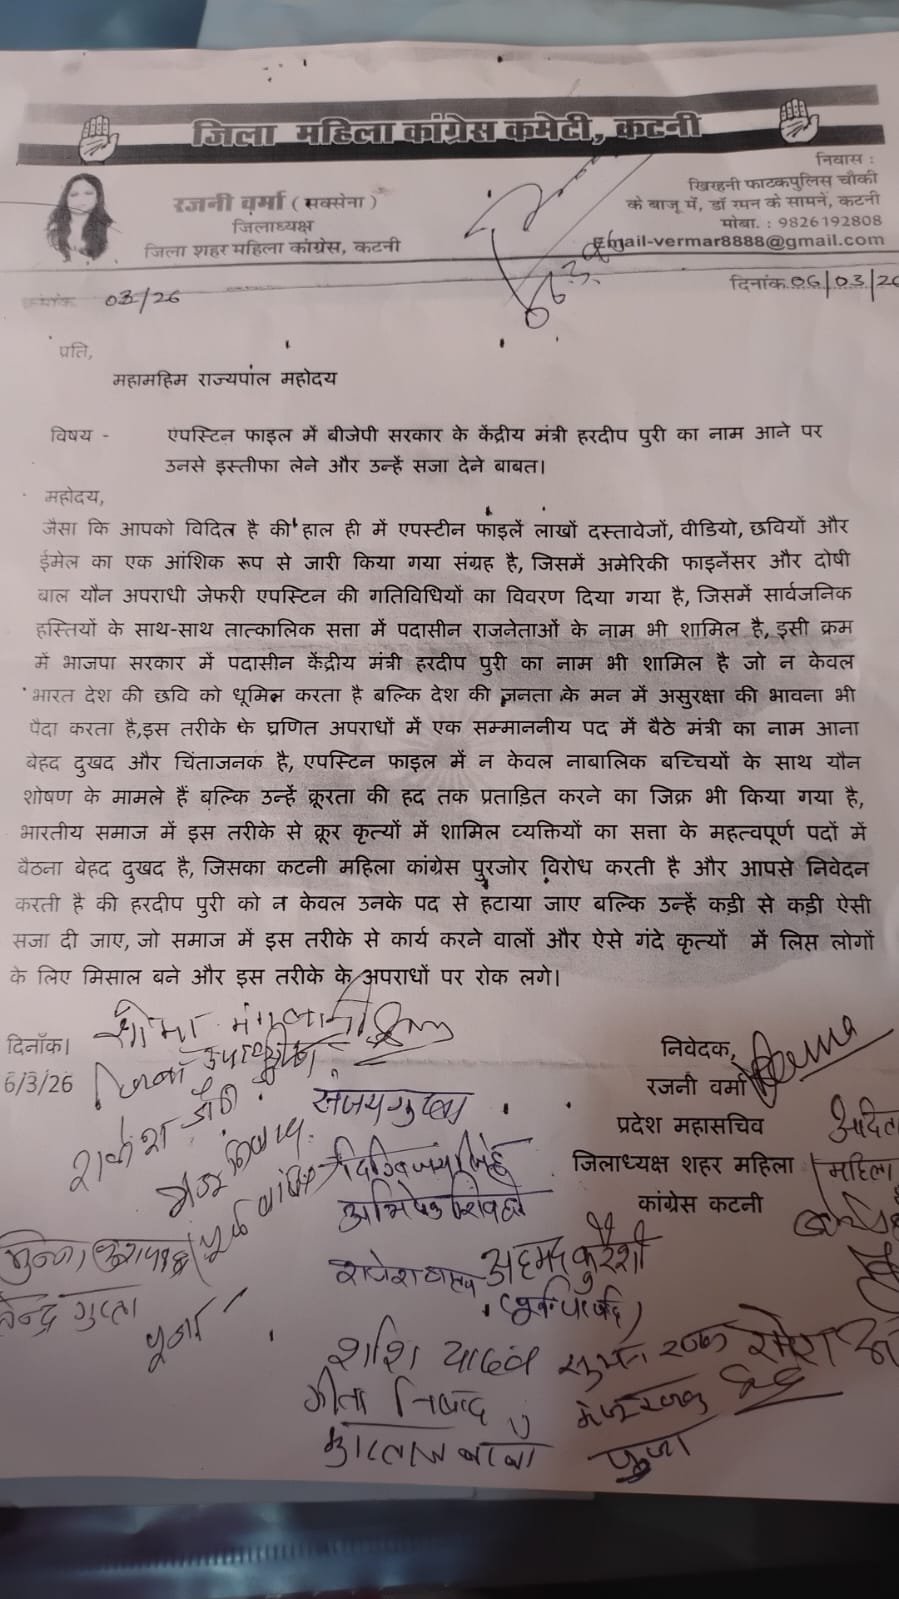 जिला महिला कांग्रेस कमेटी, कटनी
रजनी वर्मा (सक्सेना)
जिलाध्यक्ष
जिला शहर महिला कांग्रेस, कटनी
निवास :
खिरहनी फाटकपुलिस चौकी
के बाजू में, डॉ रमन के सामनें, कटनी
मोबा. : 9826192808
Email-vermar8888@gmail.com
क्रमांक 03/26
दिनांक 06/03/26
प्रति,
महामहिम राज्यपाल महोदय
विषय - एपस्टिन फाइल में बीजेपी सरकार के केंद्रीय मंत्री हरदीप पुरी का नाम आने पर
उनसे इस्तीफा लेने और उन्हें सजा देने बाबत।
महोदय,
जैसा कि आपको विदित है की हाल ही में एपस्टीन फाइलें लाखों दस्तावेजों, वीडियो, छवियों और
ईमेल का एक आंशिक रूप से जारी किया गया संग्रह है, जिसमें अमेरिकी फाइनेंसर और दोषी
बाल यौन अपराधी जेफरी एपस्टिन की गतिविधियों का विवरण दिया गया है, जिसमें सार्वजनिक
हस्तियों के साथ-साथ तात्कालिक सत्ता में पदासीन राजनेताओं के नाम भी शामिल है, इसी क्रम
में भाजपा सरकार में पदासीन केंद्रीय मंत्री हरदीप पुरी का नाम भी शामिल है जो न केवल
भारत देश की छवि को धूमिल करता है बल्कि देश की जनता के मन में असुरक्षा की भावना भी
पैदा करता है,इस तरीके के घ्रणित अपराधों में एक सम्माननीय पद में बैठे मंत्री का नाम आना
बेहद दुखद और चिंताजनक है, एपस्टिन फाइल में न केवल नाबालिक बच्चियों के साथ यौन
शोषण के मामले हैं बल्कि उन्हें क्रूरता की हद तक प्रताड़ित करने का जिक्र भी किया गया है,
भारतीय समाज में इस तरीके से क्रूर कृत्यों में शामिल व्यक्तियों का सत्ता के महत्वपूर्ण पदों में
बैठना बेहद दुखद है, जिसका कटनी महिला कांग्रेस पुरजोर विरोध करती है और आपसे निवेदन
करती है की हरदीप पुरी को न केवल उनके पद से हटाया जाए बल्कि उन्हें कड़ी से कड़ी ऐसी
सजा दी जाए, जो समाज में इस तरीके से कार्य करने वालों और ऐसे गंदे कृत्यों में लिप्त लोगों
के लिए मिसाल बने और इस तरीके के अपराधों पर रोक लगे।
दिनाँक।
6/3/26
निवेदक,
रजनी वर्मा
प्रदेश महासचिव
जिलाध्यक्ष शहर महिला
कांग्रेस कटनी
संजय गुप्ता
दिग्विजय सिंह
अहमद कुरैशी
शशि यादव
गीता निषाद
पूजा